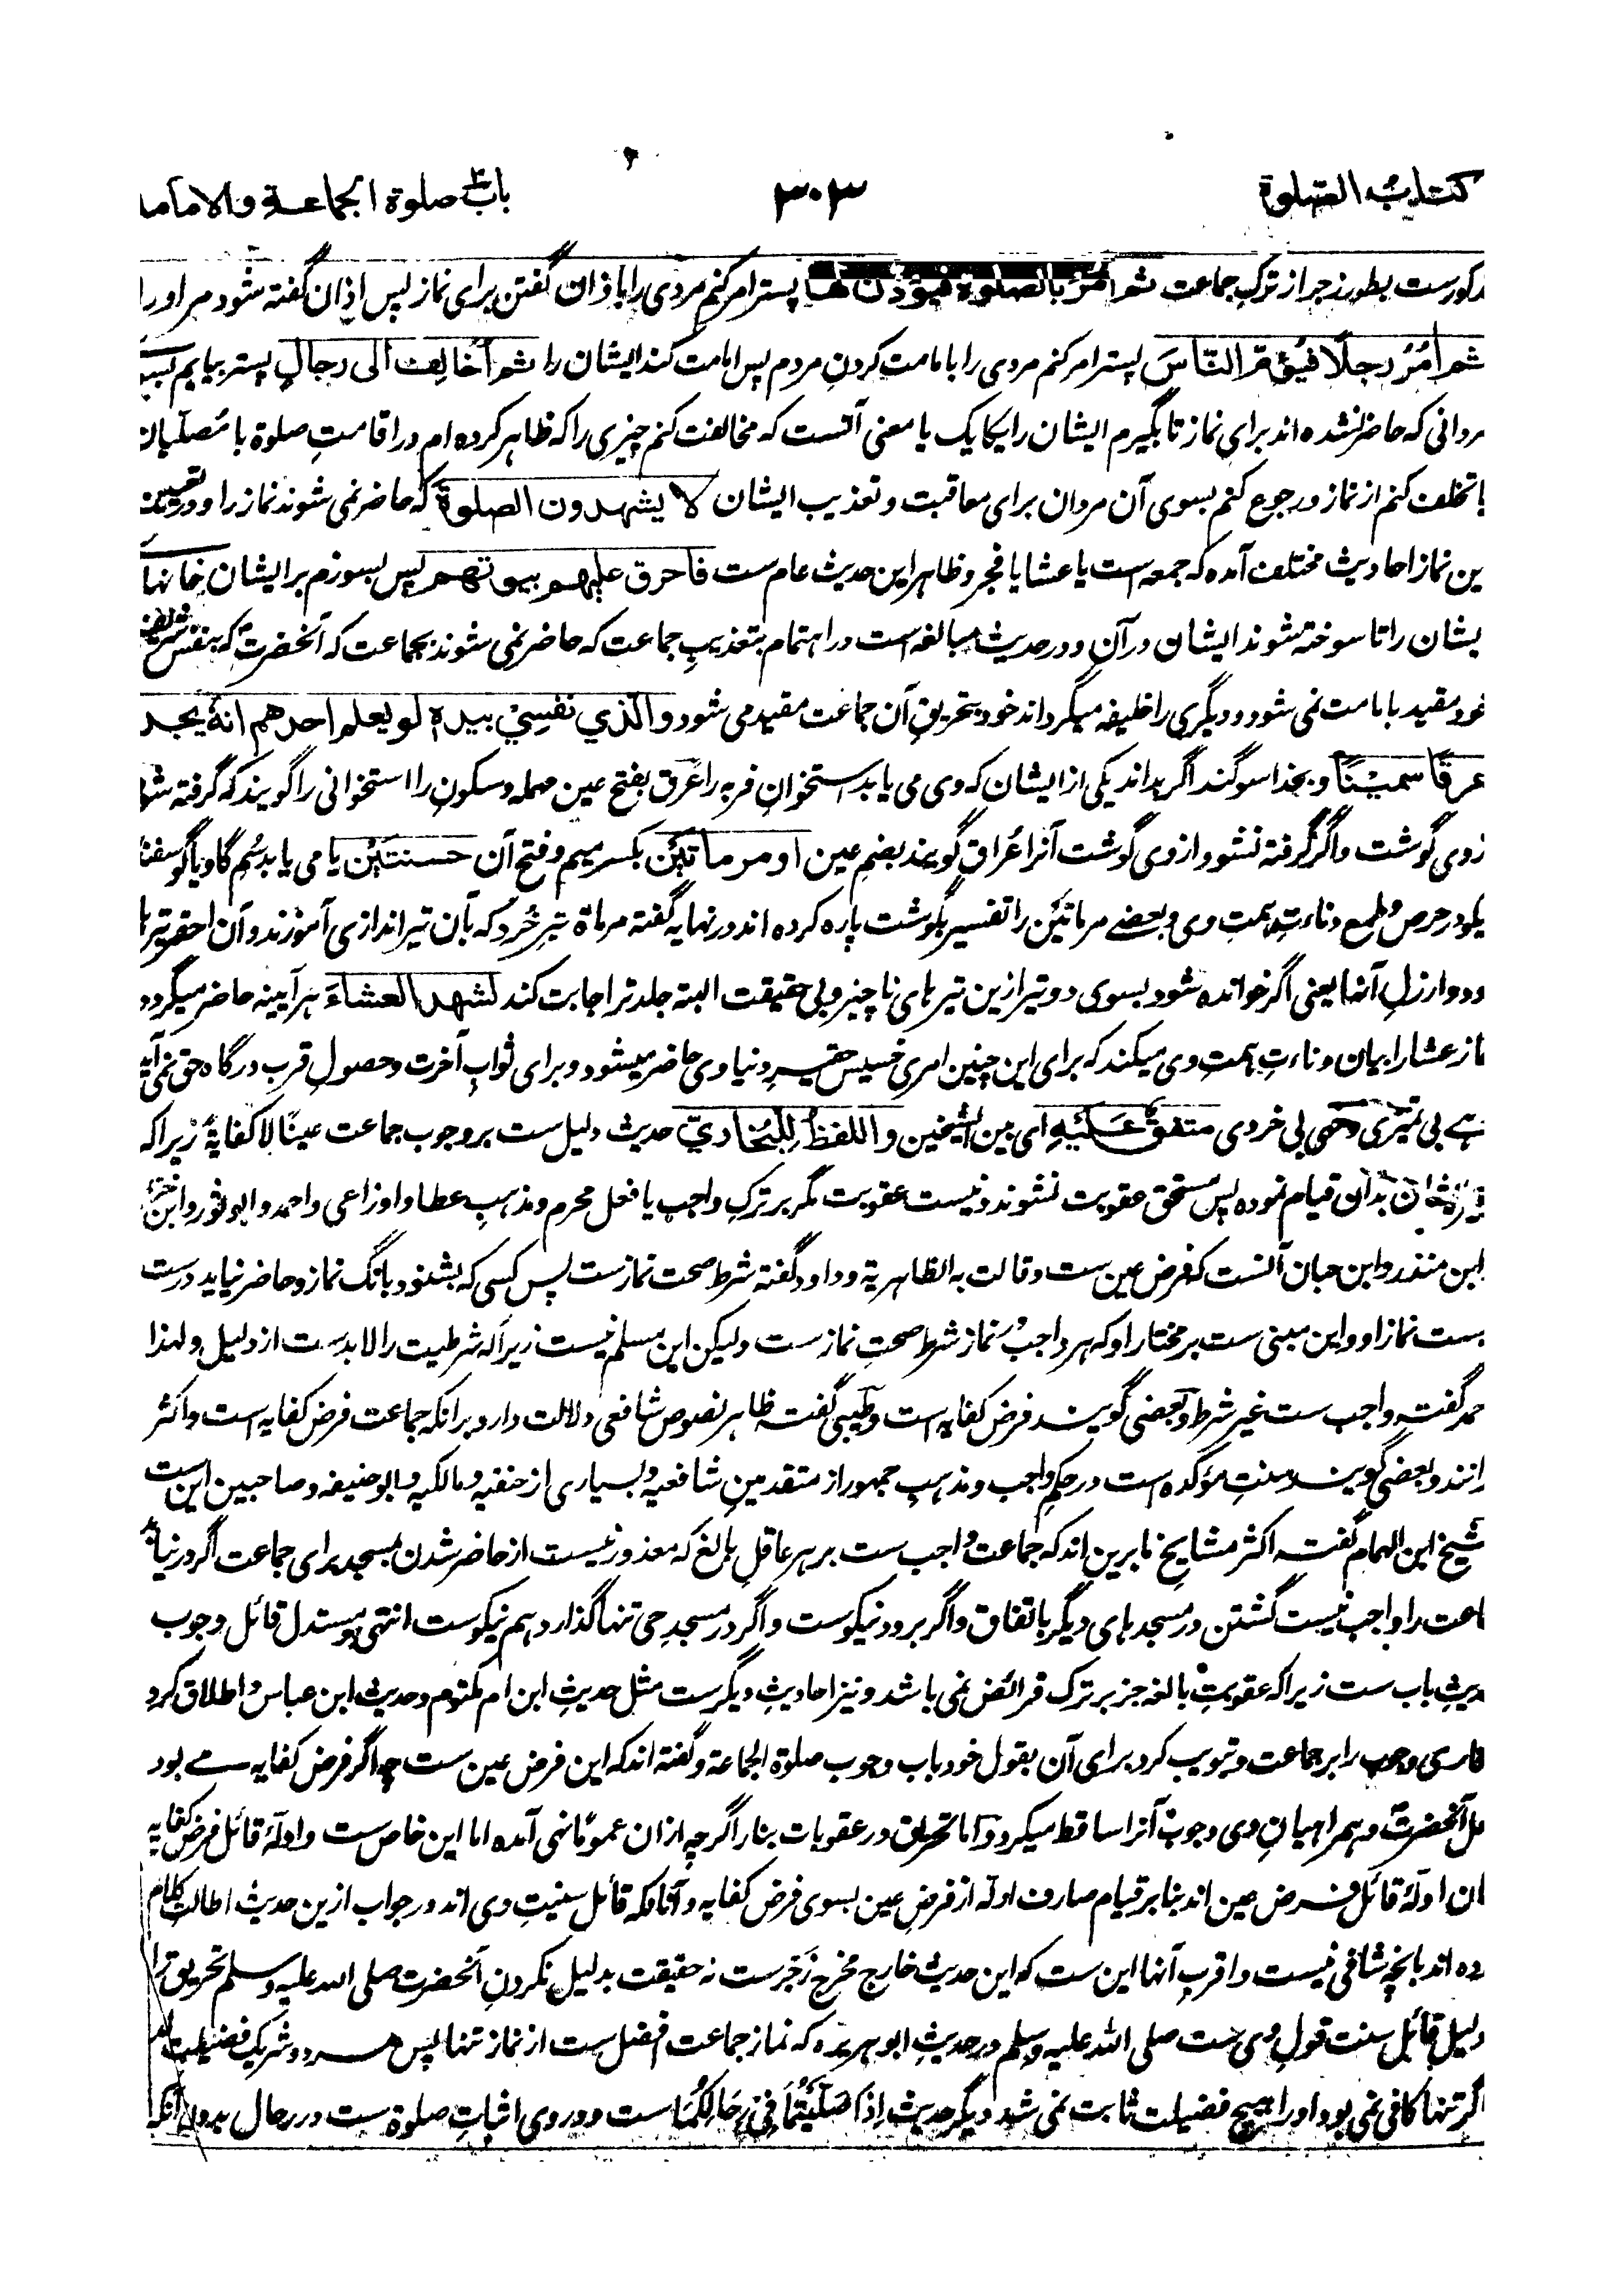 کتاب الصلوة ۳۰۳ باب صلوة الجماعة والامامة
کورست بطور زجر از ترک جماعت ثم آمر بالصلوة فیؤذن لها پستر امر کنم مردی را باذان گفتن برای نماز پس اذان گفته شود مر او را
ثم آمُرُ رجلًا فیؤمّ النّاسَ پستر امر کنم مردی را بامامت کردنِ مردم پس امامت کند ایشان را ثم اُخالِفَ الی رجالٍ پستر بیایم بسوی
مردانی که حاضر نشده اند برای نماز تا بگیرم ایشان را یکایک یا معنی آنست که مخالفت کنم چیزی را که ظاهر کرده ام در اقامتِ صلوة با مُصلّیان
یا تخلف کنم از نماز و رجوع کنم بسوی آن مردان برای معاقبت و تعذیب ایشان لا یشهدون الصلوة که حاضر نمی شوند نماز را و در تعیین
ین نماز احادیث مختلف آمده که جمعه است یا عشا یا فجر و ظاهر این حدیث عام ست فاحرق علیهم بیوتهم پس بسوزم بر ایشان خانها
یشان را تا سوخته شوند ایشان در آن و در حدیث مبالغه است در اهتمام بتعذیبِ جماعت که حاضر نمی شوند بجماعت که آنحضرت که بنفس شریف
خود مقید بامامت نمی شود و دیگری را خلیفه میگرداند خود بتحریقِ آن جماعت مقید می شود والّذي نفسِيْ بیدهٖ لو یعلم احدهم انهٗ یجد
عرقًا سمیْنًا و بخدا سوگند اگر بداند یکی از ایشان که وی می یابد استخوانِ فربه را عَرق بفتح عین مهمله و سکونِ را استخوانی را گویند که گرفته شود
زوی گوشت و اگر گرفته نشود از وی گوشت آنرا عُراق گویند بضمِ عین او مرماتیْن بکسر میم و فتح آن حسنتَیْن یا می یابد سُم گاو یا گوسفند
یکو در حرص و طمع و دناءتِ همتِ وی و بعضے مرماتیْن را تفسیر بگوشت پاره کرده اند و در نهایه گفته مرماة تیرِ خُرد که بآن تیراندازی آموزند و آن احقر تیرها
ودو ارزلِ آنها یعنی اگر خوانده شود بسوی دو تیر ازین تیرهای ناچیز و بی حقیقت البته جلدتر اجابت کند لشهد العشاءَ هر آیینه حاضر میگردد
ماز عشا را بیان دناءتِ همتِ وی میکند که برای این چنین امری خسیس حقیرِ دنیاوی حاضر میشود و برای ثوابِ آخرت و حصولِ قرب درگاه حق نمی آید
هے بی تمیزی و هی بی خردی متفقٌ عَلَیْهِ ای بین الشیخین و اللفظُ لِلْبُخاريّ حدیث دلیل ست بر وجوب جماعت عینًا لا کفایةً زیراکه
بدان قیام نموده پس مستحق عقوبت نشوند و نیست عقوبت مگر بر ترکِ واجب یا فعل محرم و مذهبِ عطا و اوزاعی و احمد و ابو ثور و ابن
ابن منذر و ابن حبان آنست که فرض عین ست و قالت به الظاهریة و داود گفته شرط صحت نماز ست پس کسی که بشنود بانگ نماز و حاضر نیاید درست
یست نماز او و این مبنی ست بر مختار او که هر واجب در نماز شرط صحتِ نماز ست ولیکن این مسلم نیست زیراکه شرطیت را لا بدست از دلیل و لهذا
حمد گفته واجب ست غیر شرط و بعضی گویند فرض کفایه است و طیبی گفته ظاهر نصوص شافعی دلالت دارد برانکه جماعت فرض کفایه است و اکثر
رانند و بعضی گویند سنتِ مؤکده است در حکمِ واجب و مذهبِ جمهور از متقدمینِ شافعیه و بسیاری از حنفیه و مالکیه و ابو حنیفه و صاحبین این ست
شیخ ابن الهمام گفته اکثر مشایخِ ما برین اند که جماعت واجب ست بر هر عاقلِ بالغ که معذور نیست از حاضر شدن مسجد برای جماعت اگر در نیابد
اعت را واجب نیست گشتن در مسجدهای دیگر باتفاق و اگر برود نیکوست و اگر در مسجدِ حی تنها گذارد هم نیکوست انتهی و مستدل قائل وجوب
دیثِ باب ست زیراکه عقوبتِ بالغه جز بر ترکِ فرائض نمی باشد و نیز احادیثِ دیگرست مثل حدیثِ ابن ام مکتوم و حدیث ابن عباس و اطلاق کرد
اری وجوب را بر جماعت و تبویب کرد برای آن بقول خود باب وجوب صلوة الجماعة و گفته اند که این فرض عین ست چه اگر فرض کفایه مے بود
عل آنحضرت و همراهیانِ وی وجوبِ آنرا ساقط میکرد و اما تحریق در عقوبات بنار اگرچه ازان عمومًا نهی آمده اما این خاص ست و ادلۀ قائل فرض کفایه
ان ادلۀ قائل فرض عین اند بنابر قیام صارف ادله از فرضِ عین بسوی فرض کفایه و آنانکه قائل سنیتِ وی اند در جواب ازین حدیث اطالتِ کلام
ده اند بانچه شافی نیست و اقربِ آنها این ست که این حدیث خارج مخرجِ زَجْر ست نه حقیقت بدلیل نکردنِ آنحضرت صلی الله علیه وسلم تحریق را
دلیل قائل سنت قولِ وی ست صلی الله علیه وسلم در حدیثِ ابو هریره که نماز جماعت افضل ست از نماز تنها پس هر دو شریکِ فضیلت اند
اگر تنها کافی نمی بود او را هیچ فضیلت ثابت نمی شد دیگر حدیث اِذَا صَلَّیْتُمَا فِیْ رِحَالِکُمَا ست و در وی اثباتِ صلوة ست در رحال بدون آنکه